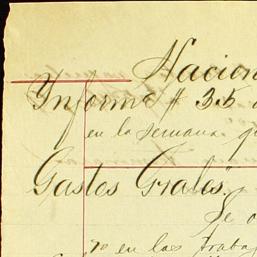 Nacion
Informe # 35
en la semana
Gastos Grales".
Se
en los traba